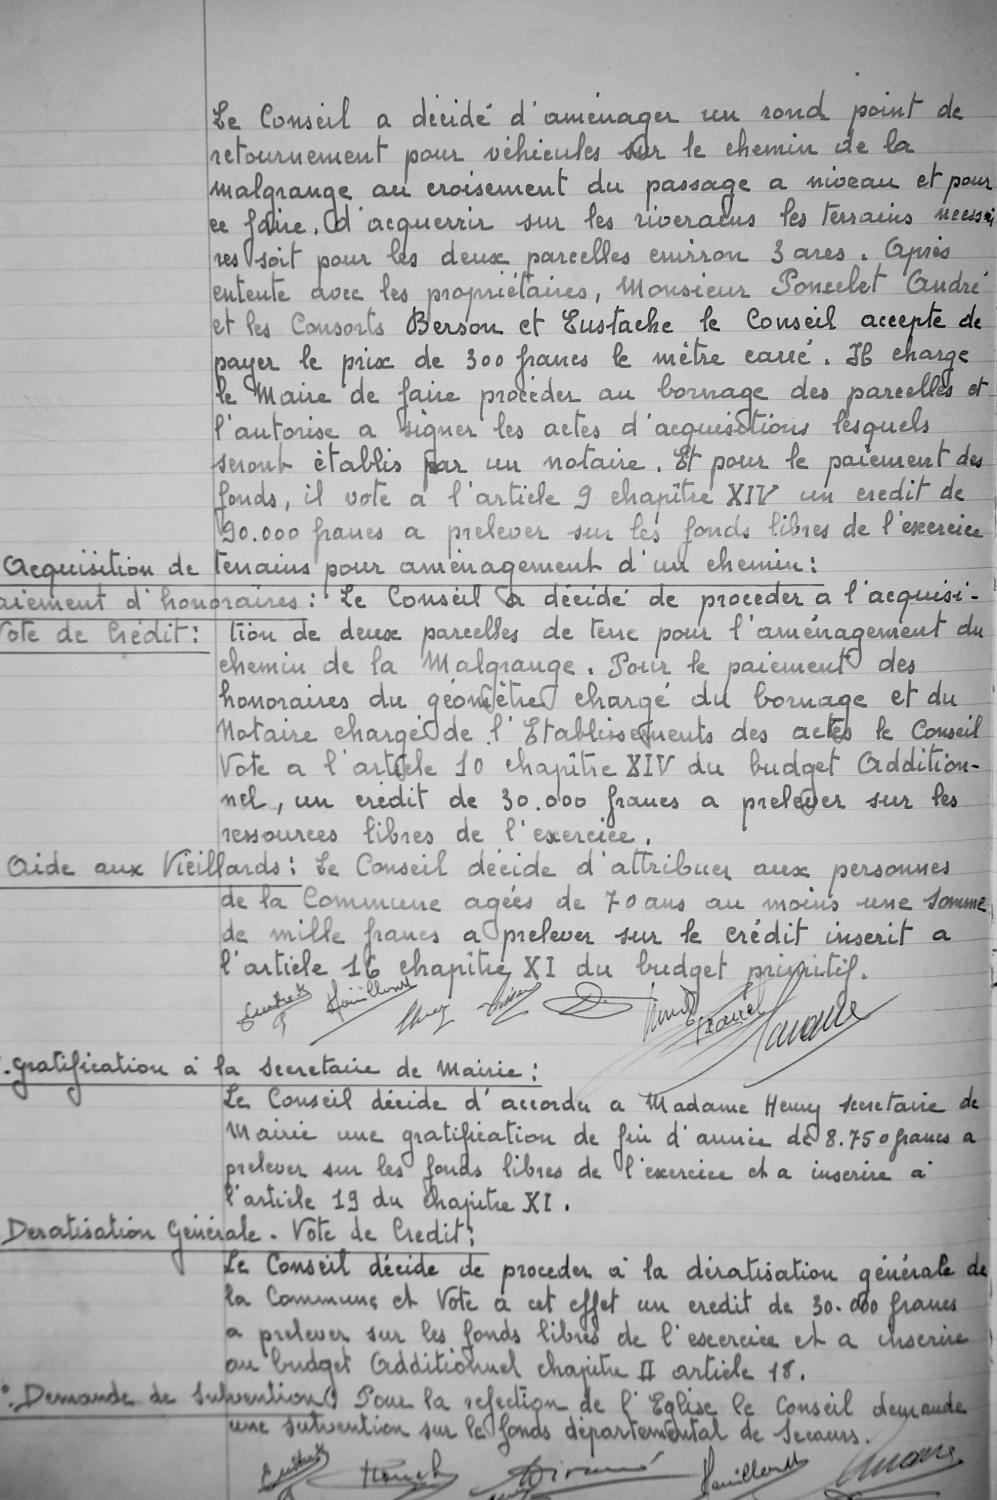 Le Conseil a décidé d'aménager un rond point de
retournement pour véhicules sur le chemin de la
Malgrange au croisement du passage a niveau et pour
ce faire, d'acquerrir sur les riverains les terrains necessai
res soit pour les deux parcelles environ 3 ares. Après
entente avec les propriétaires, Monsieur Poncelet André
et les Consorts Berson et Eustache le Conseil accepte de
payer le prix de 300 francs le mètre carré. Il charge
le Maire de faire procéder au bornage des parcelles et
l'autorise a signer les actes d'acquisitions lesquels
seront établis par un notaire. Et pour le paiement des
fonds, il vote a l'article 9 chapître XIV un credit de
90.000 francs a prelever sur les fonds libres de l'exercice
Acquisition de terrains pour aménagement d'un chemin:
aiement d'honoraires: Le Conseil a décidé de proceder a l'acquisi-
Vote de Crédit: tion de deux parcelles de terre pour l'aménagement du
chemin de la Malgrange. Pour le paiement des
honoraires du géomètre chargé du bornage et du
Notaire chargé de l'Etablissements des actes le Conseil
Vote a l'article 10 chapître XIV du budget Addition-
nel, un crédit de 30.000 francs a prelever sur les
ressources libres de l'exercice.
Aide aux Vieillards: Le Conseil décide d'attribuer aux personnes
de la Commune agées de 70 ans au moins une somme
de mille francs a prelever sur le crédit inscrit a
l'article 16 chapître XI du budget primitif.
Gratification à la Secretaire de Mairie:
Le Conseil décide d'accorder a Madame Henry secretaire de
Mairie une gratification de fin d'année de 8.750 francs a
prelever sur les fonds libres de l'exercice et a inscrire a
l'article 19 du chapitre XI.
Deratisation Générale - Vote de Credit:
Le Conseil décide de proceder a la dératisation générale de
la Commune et Vote a cet effet un credit de 30.000 francs
a prelever sur les fonds libres de l'exercice et a inscrire
au budget Additionnel chapitre II article 18.
Demande de Subvention: Pour la refection de l'Eglise le Conseil demande
une subvention sur le fonds départemental de Secours.